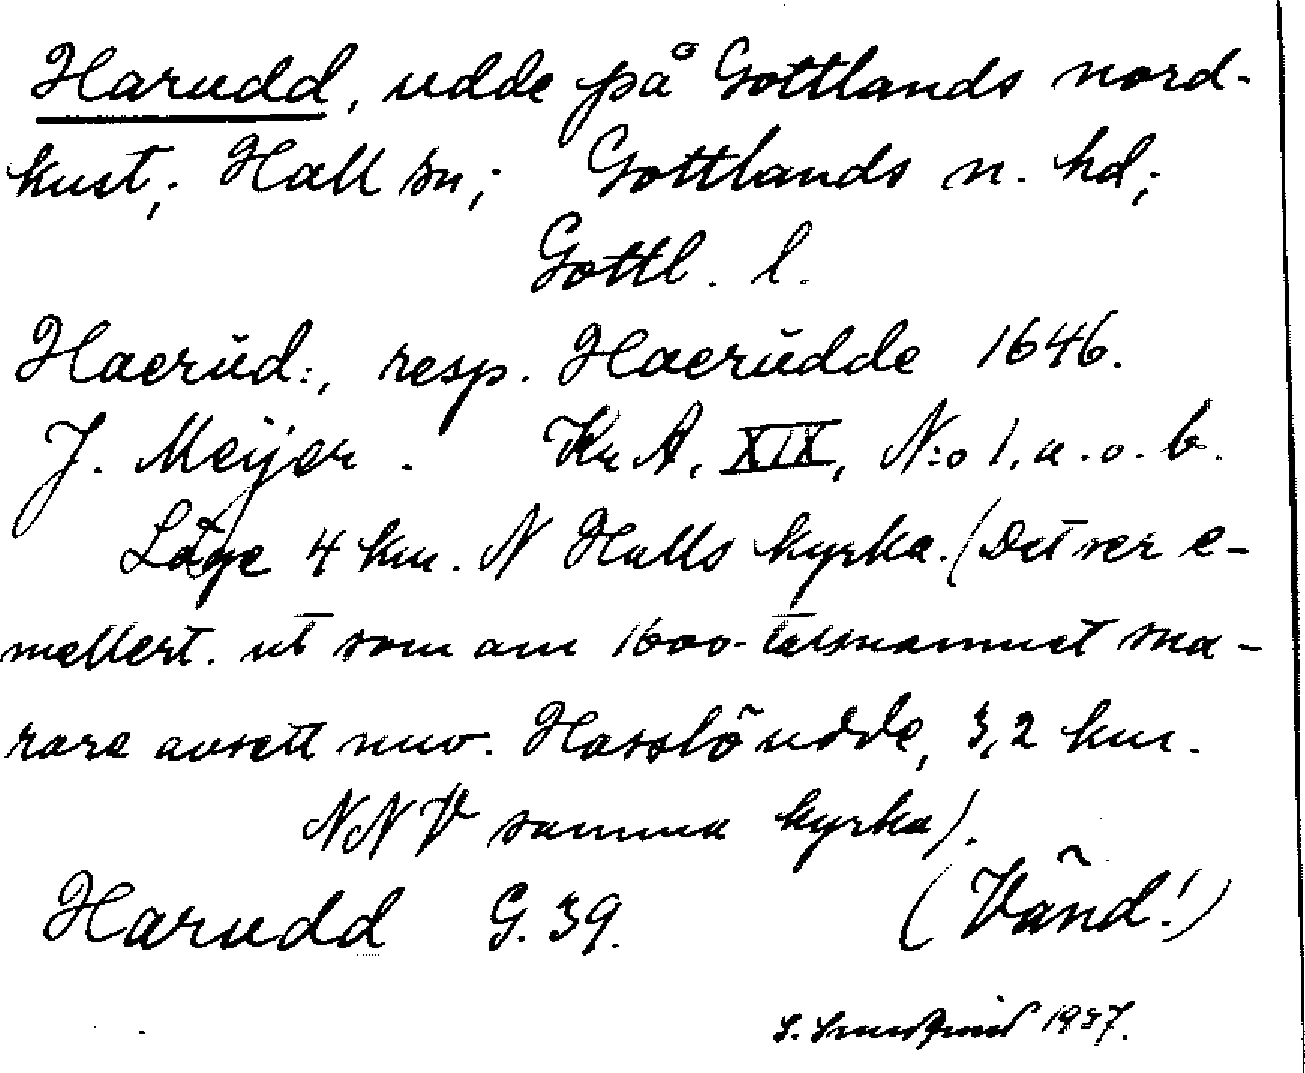 Harudd, udde på Gottlands nord-
kust; Hall sn; Gottlands n. hd;
Gottl. l.
Haerŭd:, resp. Haerŭdde 1646.
J. Meijer. Kr A, XIX, N:o 1. a. o. b.
Läge 4 km. N Halls kyrka. (Det ser e-
mellert. ut som om 1600-talsnamnet sna-
rare avsett nuv. Hasslöudde, 3,2 km.
NNV samma kyrka).
Harudd G. 39. (Vänd!)
1937.